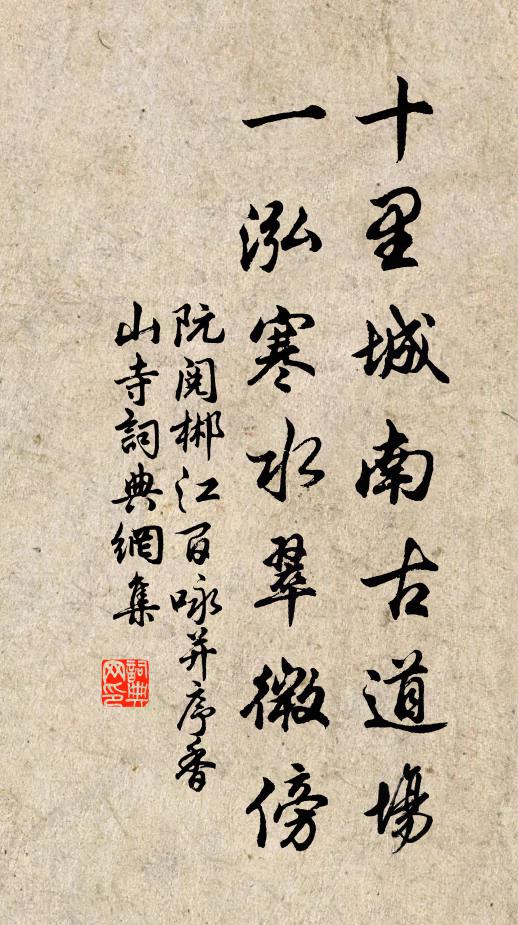 十里城南古道場
一泓寒水翠微傍
阮閱郴江百咏并序香
山寺詞典網集
詞典网印